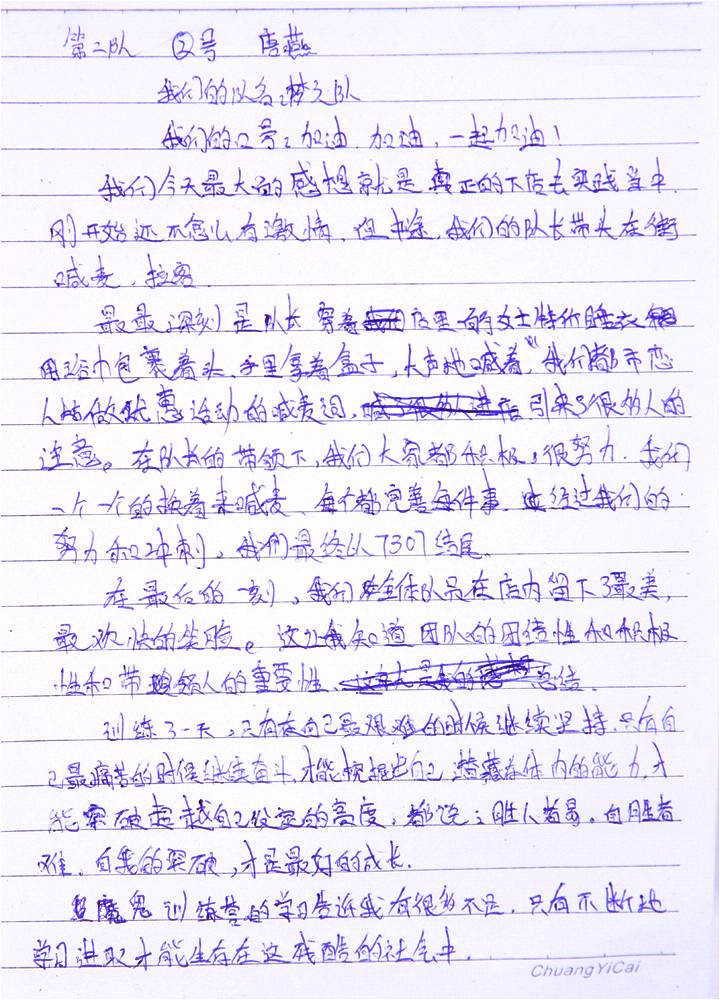 第二队 ②号 唐燕
我们的队名:梦之队
我们的口号:加油、加油、一起加油!
我们今天最大的感想就是真正的下店去实践当中.
刚开始还不怎么有激情,但中途,我们的队长带头在街
喊麦,拉客.
最最深刻是队长穿着店里面的女士特价睡衣
用浴巾包裹着头,手里拿着盒子,大声地喊着"我们都市恋
人好做优惠活动的喊麦词,引来了很多人的
注意。在队长的带领下,我们大家都积极,很努力.我们
一个一个的挨着来喊麦,每个都完善每件事.经过我们的
努力和冲刺,我们最终以7307结尾.
在最后的一刻,我们全体队员在店内留下了最美,
最欢快的笑脸。这让我知道团队的团结性和积极
性和带领人的重要性、总结.
训练了一天,只有在自己最艰难的时候继续坚持.只有自
己最痛苦的时候继续奋斗,才能挖掘出自己潜藏在体内的能力,才
能突破超越自己设定的高度,都说:胜人者易,自胜者
难.自我的突破,才是最好的成长.
魔鬼训练营的学习告诉我有很多不足.只有不断地
学习进取才能生存在这残酷的社会中.
ChuangYiCai